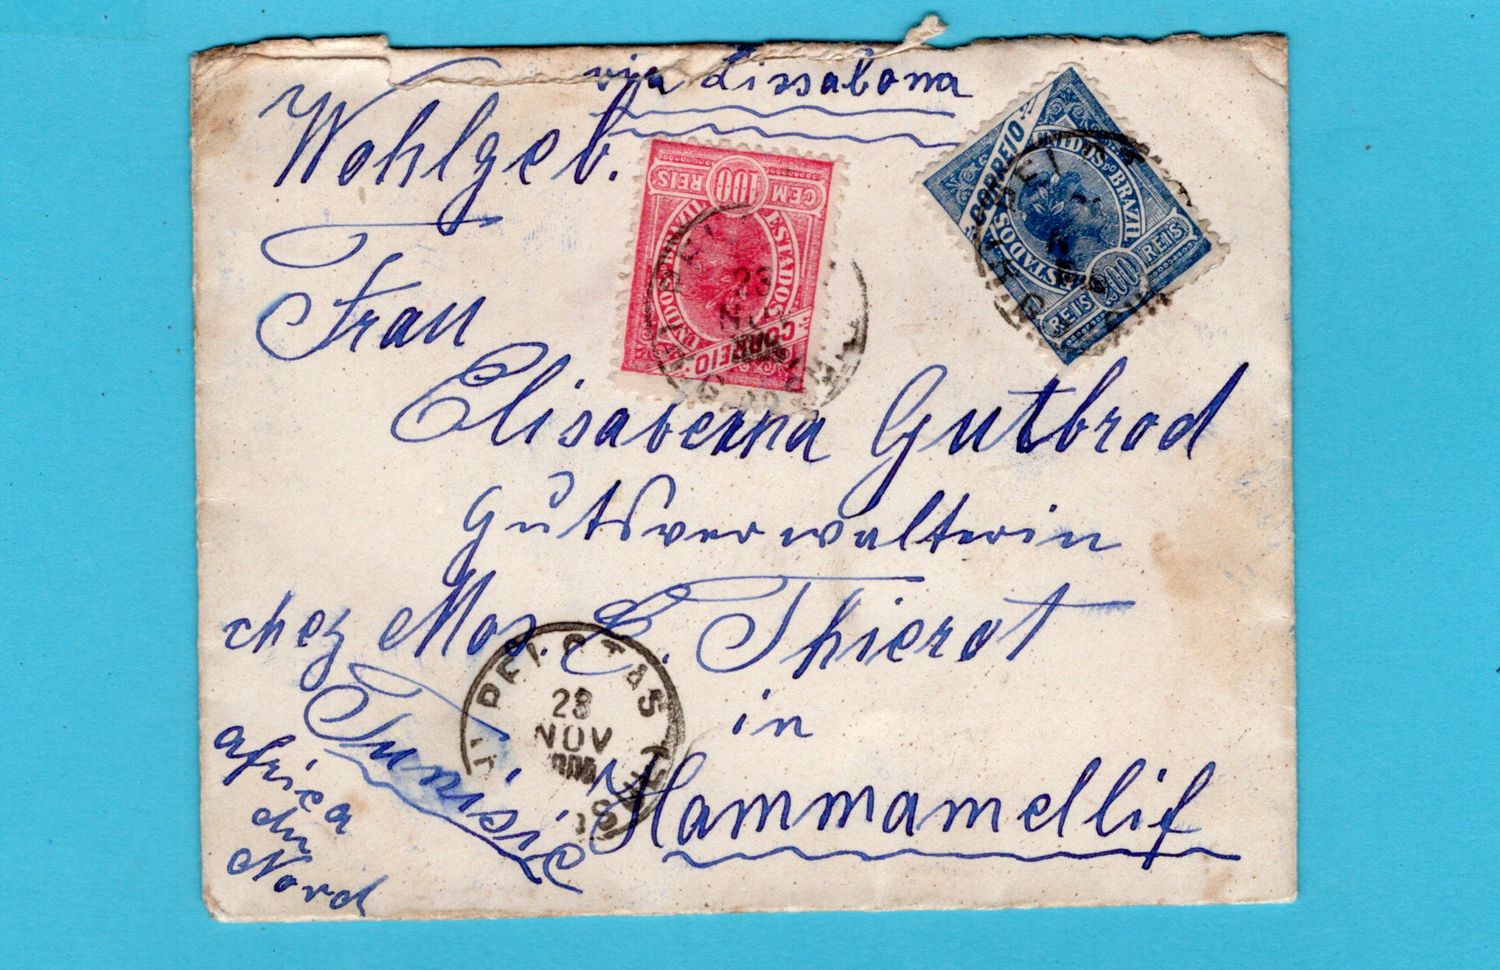 via Lissabona
Wohlgeb.
Frau
Elisaberna Gutbrod
Gutsverwalterin
chez Mos. E. Thierot
in
Tunisie
Hammamellif
Africa
du
Nord
100
REIS
CEM
ESTADOS UNIDOS
CORREIO
CORREIO
ESTADOS UNIDOS DO BRAZIL
REIS 200 REIS
23
NOV
PELOTAS
28
NOV